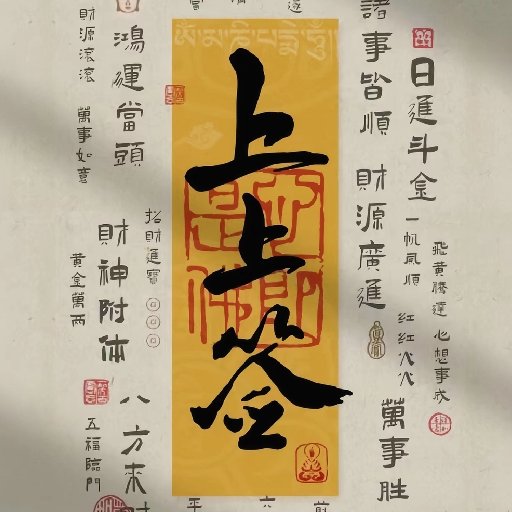 上上签
諸事皆順
財源廣進
日進斗金
一帆風順
飛黃騰達
心想事成
紅紅火火
萬事勝
鴻運當頭
財源滾滾
萬事如意
招財進寶
財神附体
黃金萬兩
八方來財
五福臨門